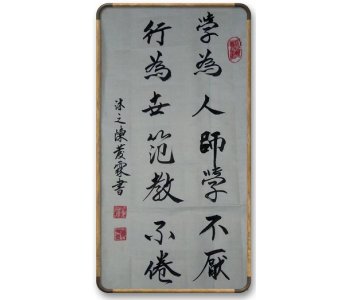 學為人師學不厭
行為世范教不倦
之陳霖書